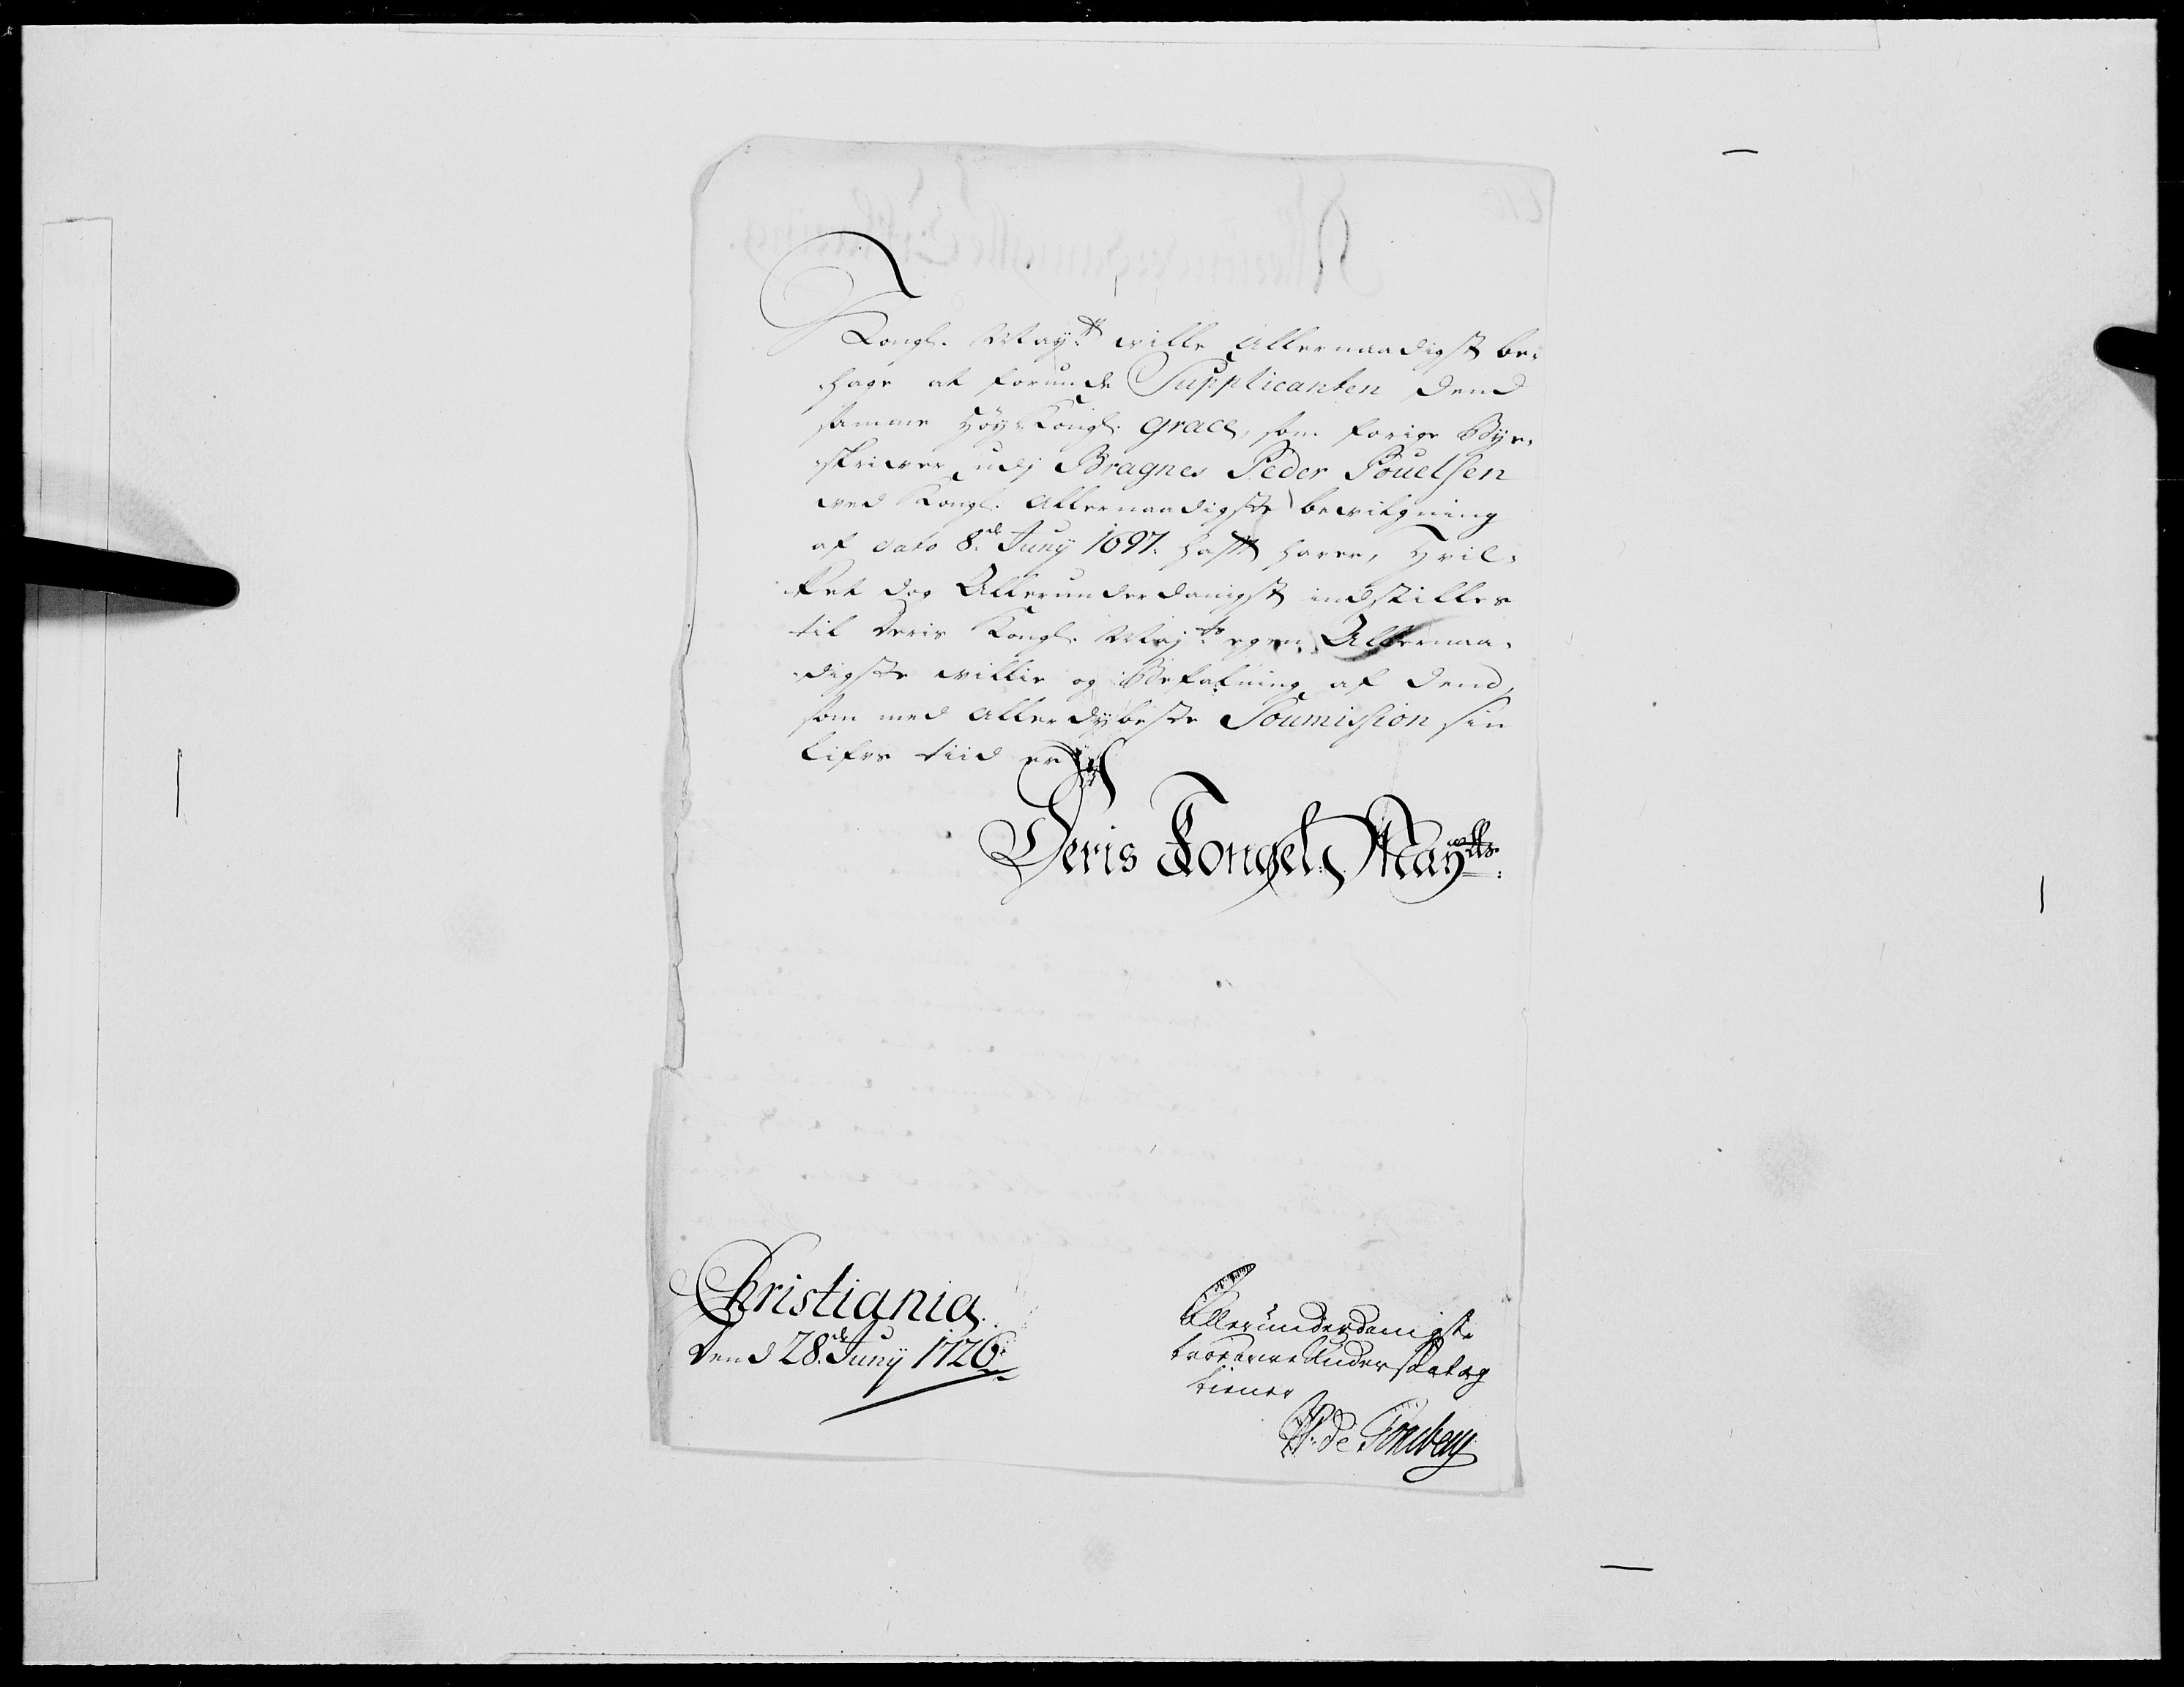 Kongl. Mayt ville Allernaadigst be-
hage at forunde Supplicanten dend
samme Høy Kongl. grace, som forige Bye-
skriver udj Bragnes Peder Pouelsen
ved Kongl. Allernaadigste bevilgning
af dato 8de Juny 1697. hafft haver, Hvil-
ket dog Allerunderdanigst indstilles
til Deris Kongl. Mayts egen Allernaa-
digste villie og Befalning af dend,
som med Allerdybeste Soumission sin
Lifs tiid er
Deris Kongel. Mayts
Christiania
Dend 28de Juny 1726
Allerunderdanigste
troe arve Undersaat og
tiener
de Tonsberg